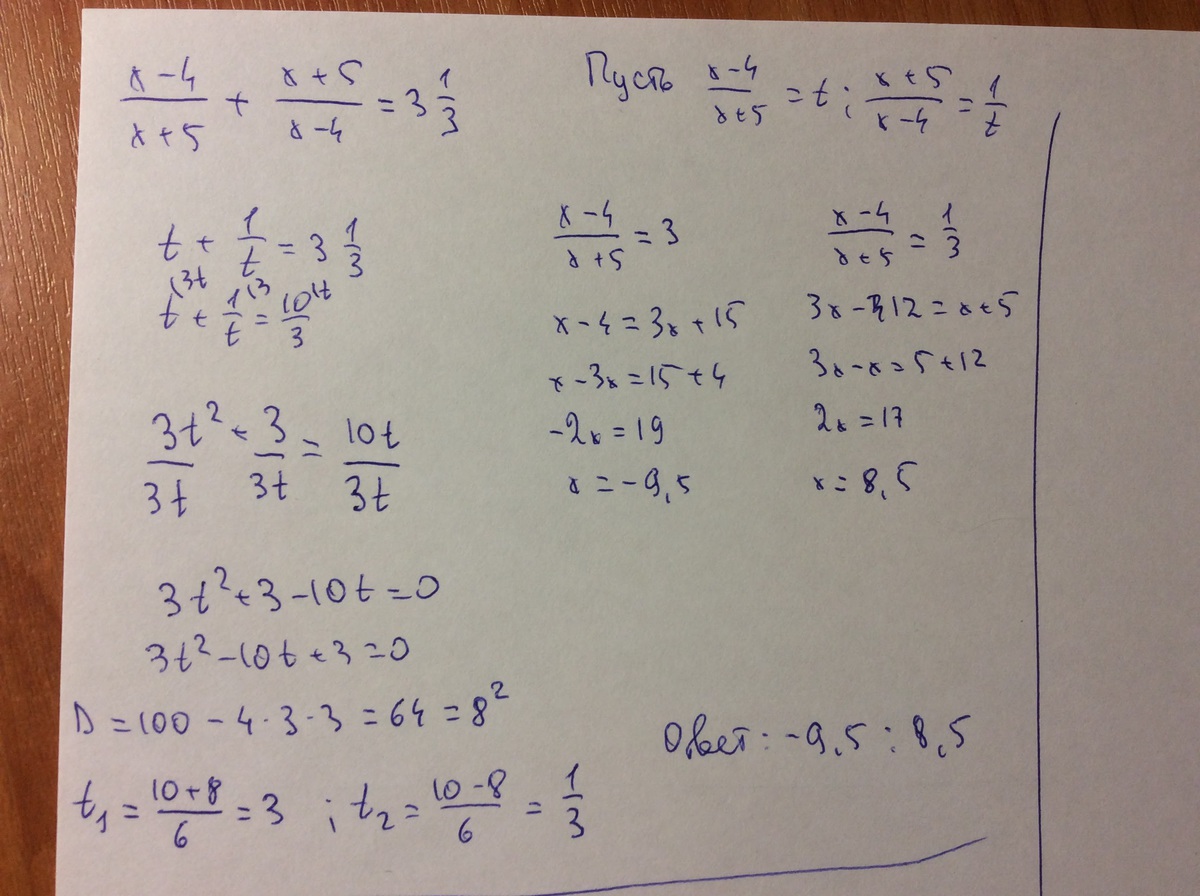 (x-4)/(x+5) + (x+5)/(x-4) = 3 1/3
Пусть (x-4)/(x+5) = t; (x+5)/(x-4) = 1/t
t + 1/t = 3 1/3
t(3t + 1/t(3 = 10(t/3
3t²/3t + 3/3t = 10t/3t
3t² + 3 - 10t = 0
3t² - 10t + 3 = 0
D = 100 - 4·3·3 = 64 = 8²
t₁ = (10+8)/6 = 3 ; t₂ = (10-8)/6 = 1/3
(x-4)/(x+5) = 3
x - 4 = 3x + 15
x - 3x = 15 + 4
-2x = 19
x = -9,5
(x-4)/(x+5) = 1/3
3x - 12 = x + 5
3x - x = 5 + 12
2x = 17
x = 8,5
Ответ: -9,5 ; 8,5